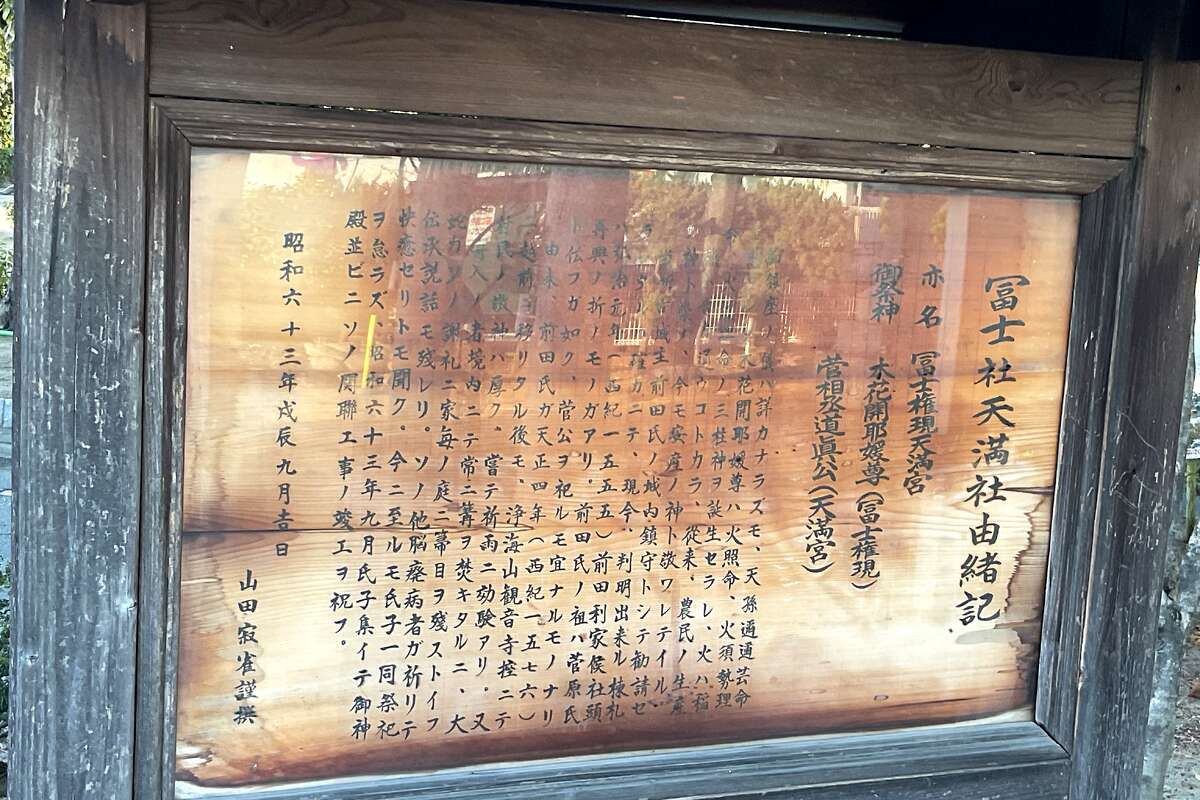 冨士社天満社由緒記
亦名 冨士権現天満宮
御祭神 木花開耶媛尊（冨士権現）
菅相丞道眞公（天満宮）
御鎮座ノ ハ詳カナラズモ、天孫邇邇芸命
木花開耶媛尊ハ火照命、火須勢理
命、火 命ノ三柱神ヲ誕生セラレ、火ハ稲
通ウコトカラ、従来、農民ノ生産
神ト 、今モ安産ノ神ト敬ワレテイル。
城主前田氏ノ城内鎮守トシテ勧請セ
カニテ、現今、判明出来ル棟札
ハ弘治元年（西紀一五五五）前田利家侯社頭
再興ノ折ノモノガアリ。前田氏ノ祖ハ菅原氏
ト伝フガ如ク、菅公ヲ祀ルモ宜ナルモノナリ
由来、前田氏ガ天正四年（西紀一五七六）
越前ニ移リタル後モ、浄海山観音寺控ニテ
村民ノ敬神ハ厚ク、嘗テ祈雨ニ功験アリ。又
入ノ者境内ニテ常ニ篝ヲ焚キタルニ、大
蛇カソノ謝礼ニ家毎ノ庭ニ箒目ヲ残ストイフ
伝承説話モ残レリ。ソノ他脳癈病者ガ祈リテ
快癒セリトモ聞ク。今ニ至ルモ氏子一同祭祀
ヲ怠ラズ、昭和六十三年九月氏子集イテ御神
殿並ビニソノ関聯工事ノ竣工ヲ祝フ。
昭和六十三年戊辰九月吉日
山田寂雀謹撰